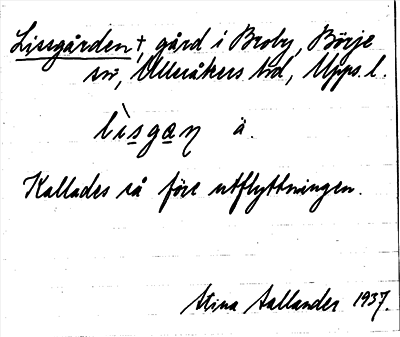 Lissgården †, gård i Broby, Börje
sn, Ulleråkers hd, Upps. l.
lìsgan ä.
Kallades så före utflyttningen.
Stina Aallander 1937.